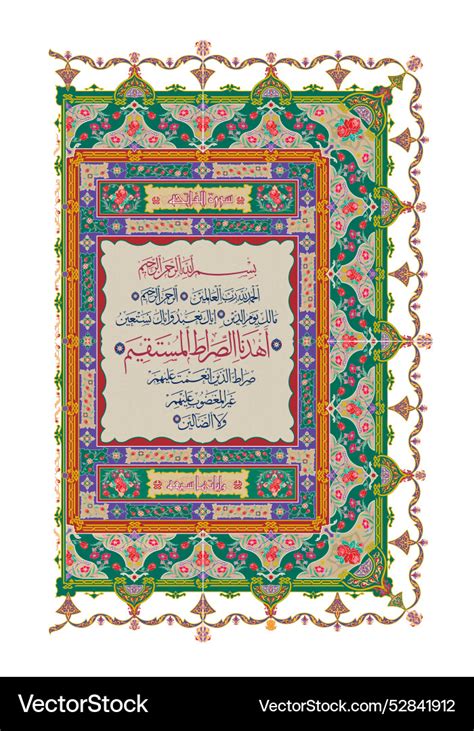 سورة الفاتحة
بسم الله الرحمن الرحيم
الحمد لله رب العالمين الرحمن الرحيم
مالك يوم الدين إياك نعبد وإياك نستعين
اهدنا الصراط المستقيم
صراط الذين أنعمت عليهم
غير المغضوب عليهم
ولا الضالين
VectorStock®
VectorStock.com/52841912